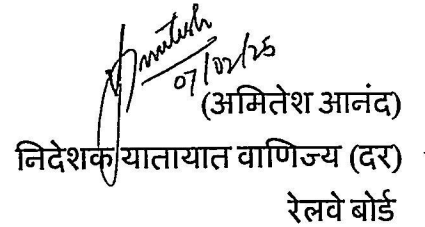 Amitesh
07/02/25
(अमितेश आनंद)
निदेशक यातायात वाणिज्य (दर)
रेलवे बोर्ड